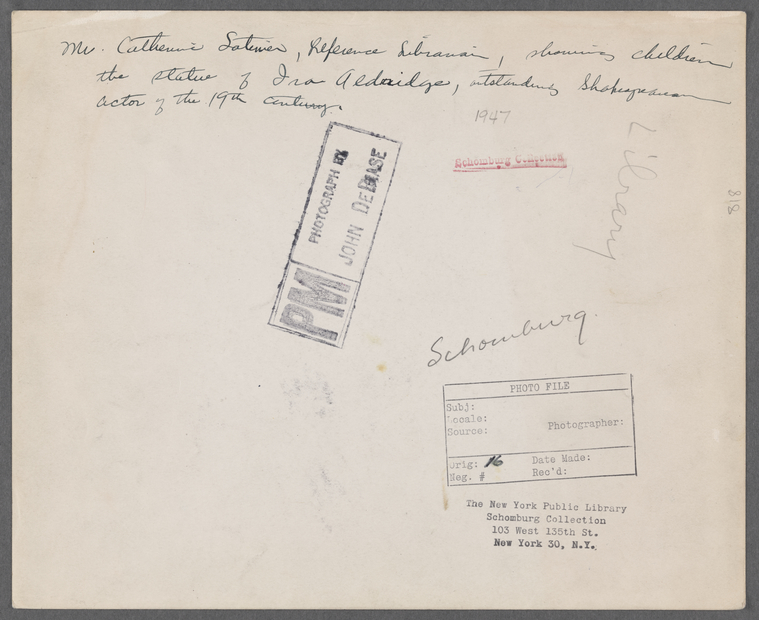 Mr. Catherine Latimer, Reference Librarian, showing children
the statue of Ira Aldridge, outstanding Shakespearean
actor of the 19th century.
1947
Schomburg Collection
Library
818
PM
PHOTOGRAPH BY
JOHN DeBIASE
Schomburg.
PHOTO FILE
Subj:
Locale:
Source:
Photographer:
Orig: 16
Neg. #
Date Made:
Rec'd:
The New York Public Library
Schomburg Collection
103 West 135th St.
New York 30, N.Y.